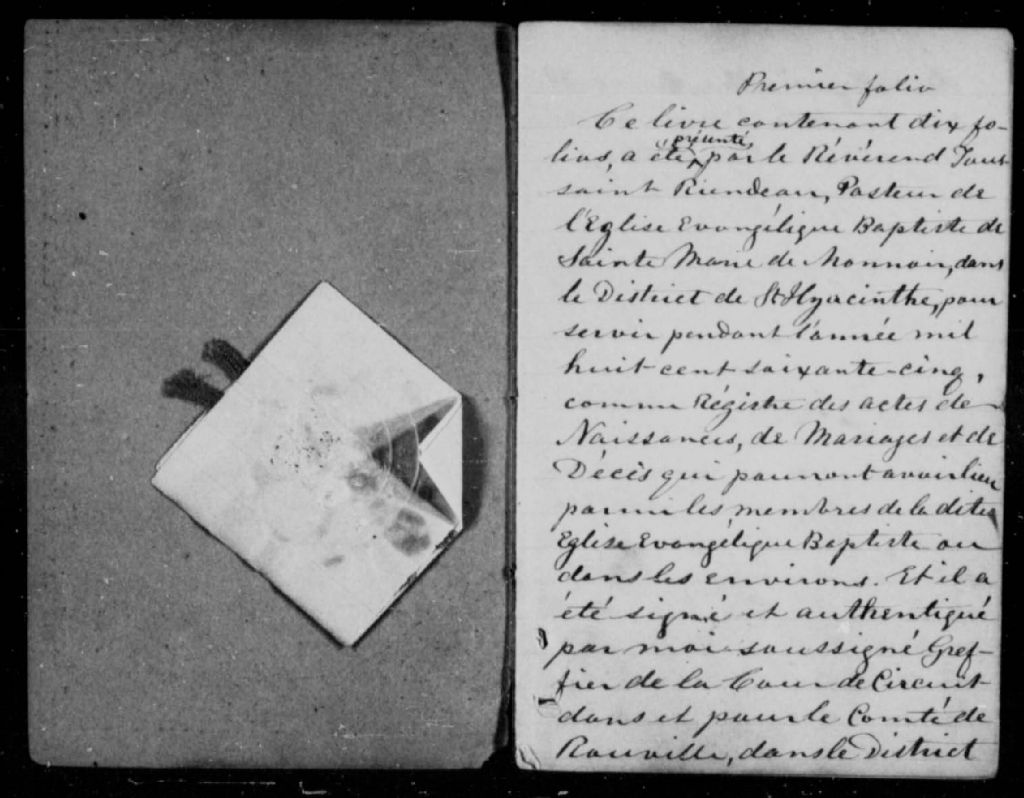 Premier folio
Ce livre contenant dix fo-
lios, a été présenté, par le Révérend Tous
saint Riendeau, Pasteur de
l'Eglise Evangélique Baptiste de
Sainte Marie de Monnoir, dans
le District de St. Hyacinthe, pour
servir pendant l'année mil
huit cent soixante-cinq,
comme Régistre des actes de
Naissances, de Mariages et de
Décès qui pourront avoir lieu
parmi les membres de la dite
Eglise Evangélique Baptiste ou
dans les environs. Et il a
été signé et authentiqué
par moi soussigné Gref-
fier de la Cour de Circuit
dans et pour le Comté de
Rouville, dans le District